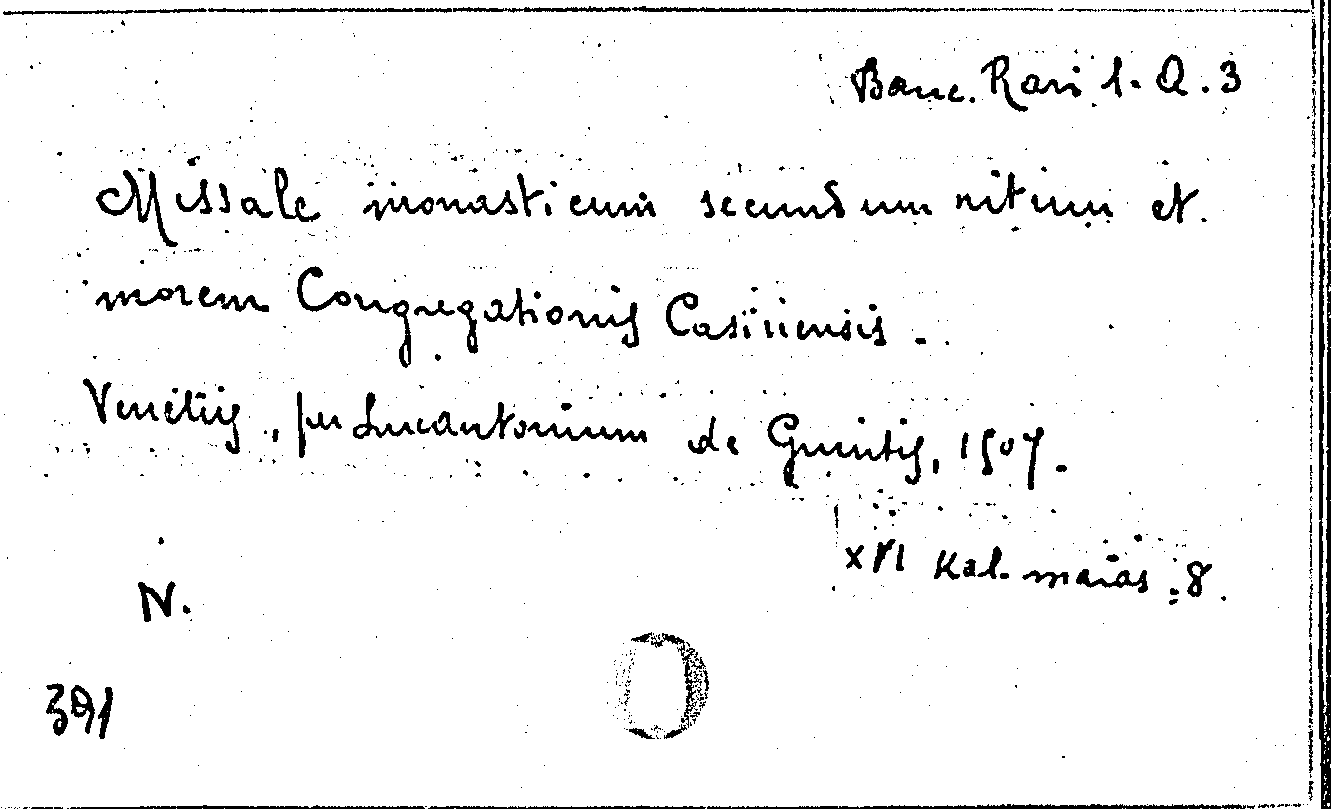 Banc. Rari 1. Q. 3
Missale monasticum secundum ritum et
morem Congregationis Casinensis.
Venetiis, per Lucantonium de Giuntis, 1507.
XVI Kal. maias. 8.
N.
391